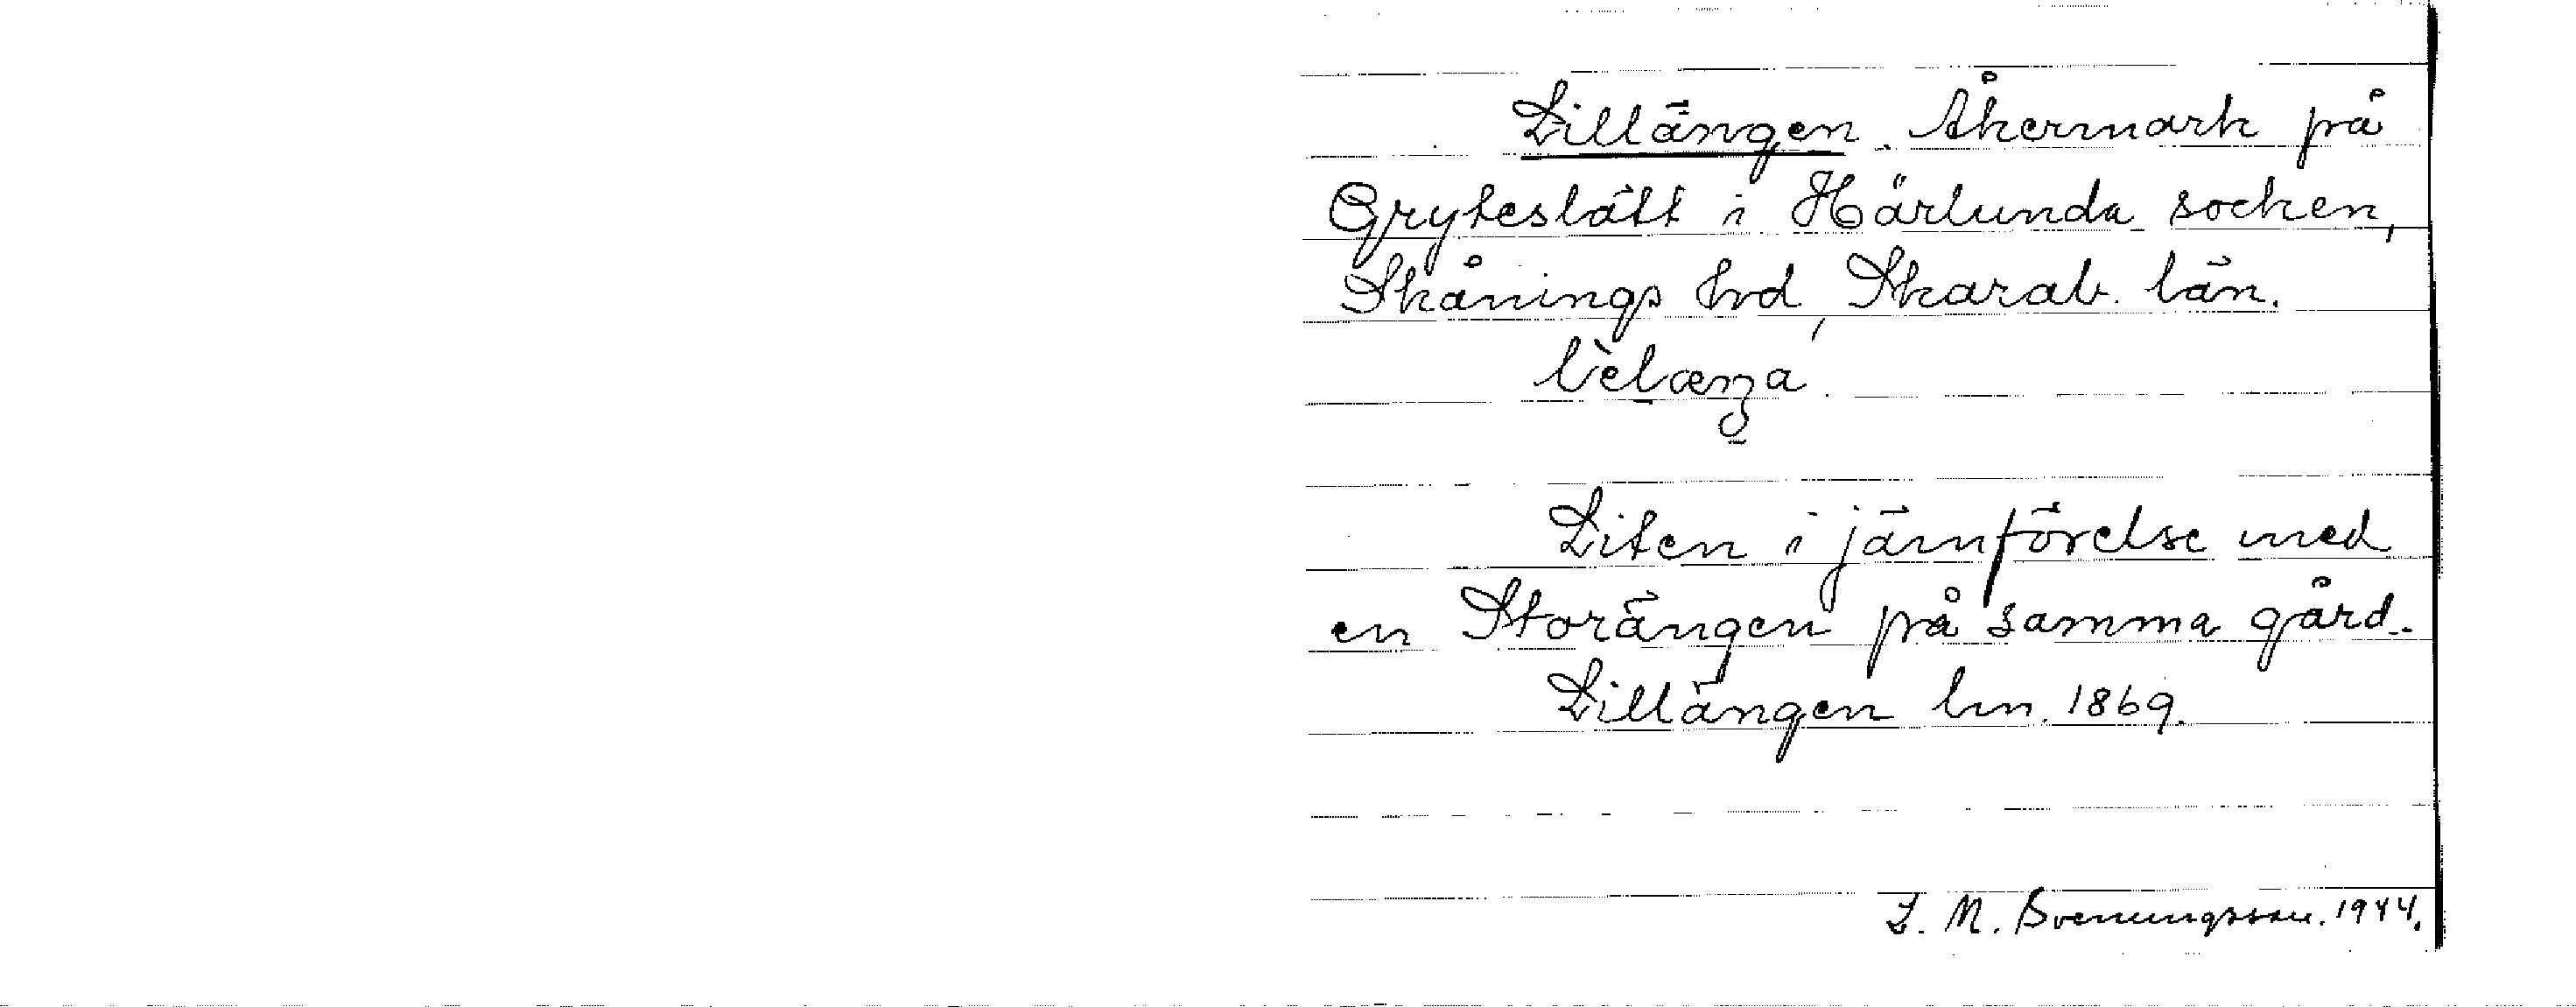 Lillängen. Åkermark på
Gryteslätt i Härlunda socken,
Skånings hd, Skarab. län.
Liten i jämförelse med
en Storängen på samma gård.
Lillängen lm. 1869.
I. M. Svenungsson. 1944.